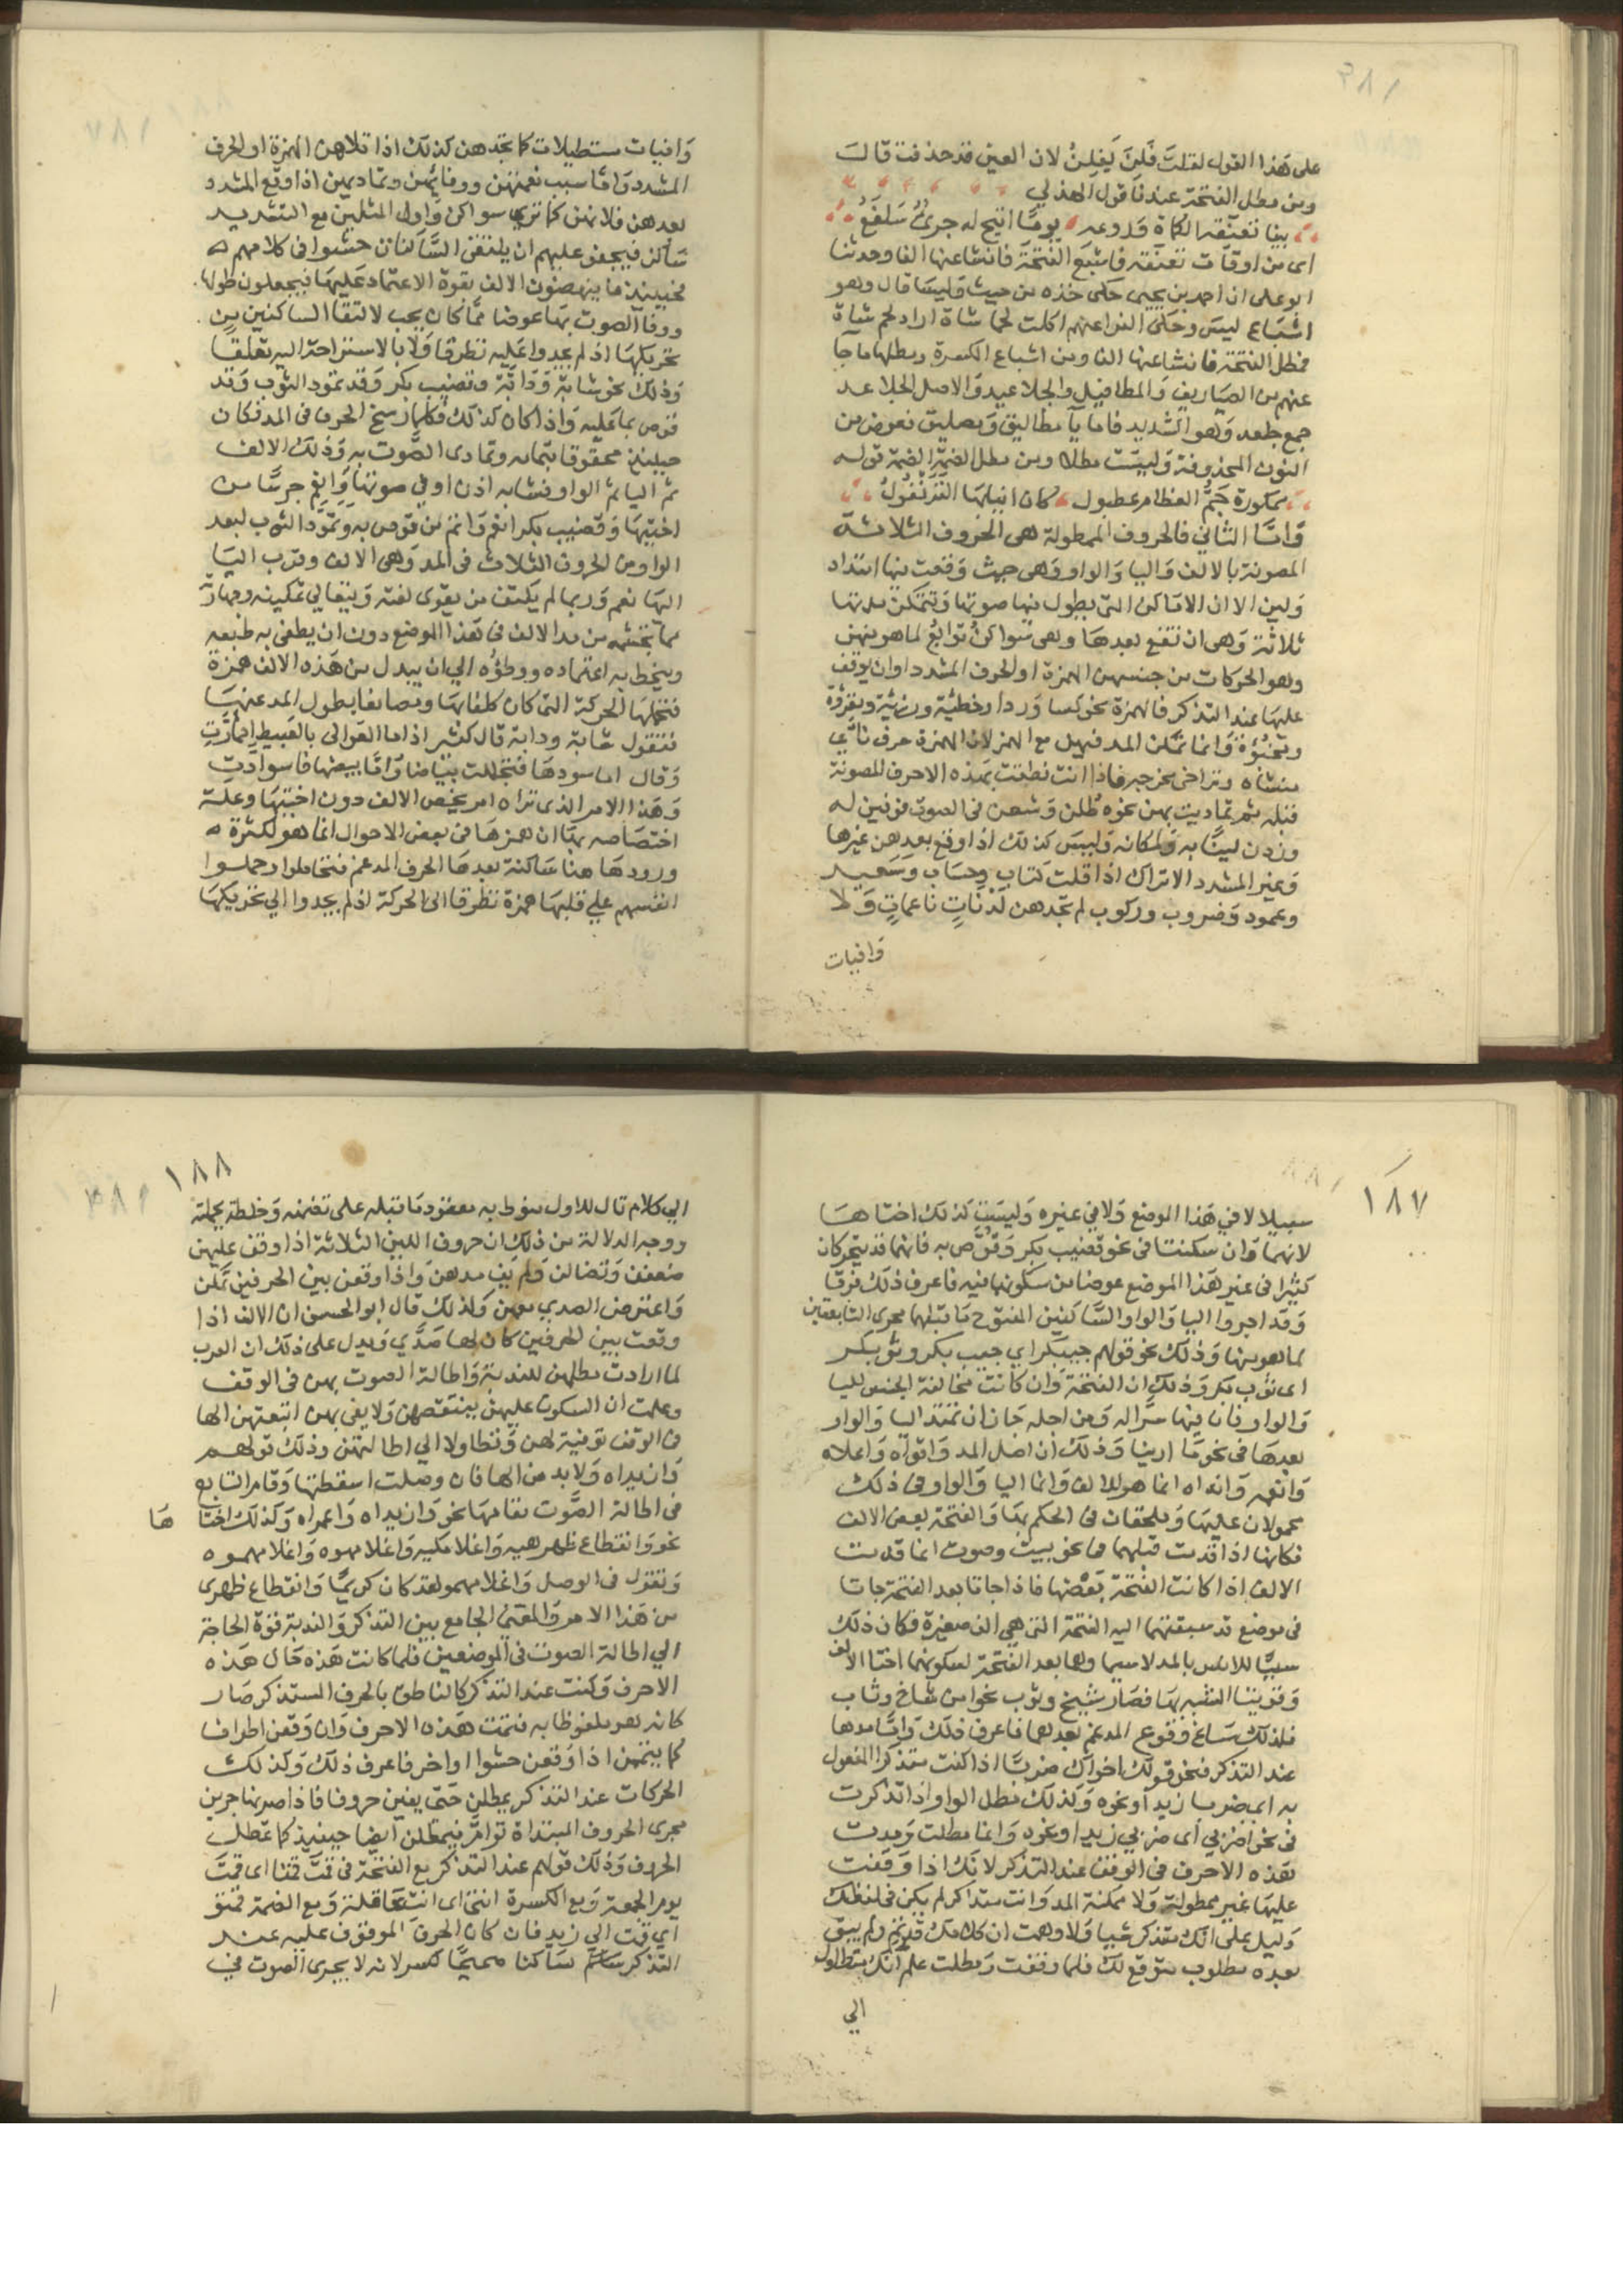 على هذا القول لقلت فلن يفلن لان العين قد حذفت قالت
ومن مطل الفتحة عندنا قول الهذلي
بينا تعنقه الكماة وروغه يوما اتيح له جرئ سلفع
اى من اوقات تعنقه فاشبع الفتحة فانشا عنها الفا وحدثنا
ابو على ان احمد بن يحيى حكى خذه من حيث وليسا قال وهو
اشباع ليس وحكى الفرا عنهم اكلت لحما شاة اراد لحم شاة
فمطل الفتحة فانشا عنها الفا ومن اشباع الكسرة ومطلها ما جا
عنهم من الصياريف والمطافيل والجلاعيد والاصل الجلاعد
جمع جلعد وهو الشديد فاما يآ مطاليق ومطيليق فعوض من
النون المحذوفة وليست مطلا ومن مطل الضمة الضمة قوله
ممكورة جم العظام عطبول كان انيابها القرنفول
واما الثانى فالحروف الممطولة هى الحروف الثلاثة
المصوتة بالالف واليا والواو وهى حيث وقعت فيها امتداد
ولين الا ان الاماكن التى يطول فيها صوتها وتتمكن مدتها
ثلاثة وهى ان تقع بعدها وهى سواكن توابع لما هو منهن
وهو الحركات من جنسهن الهمزة او الحرف المشدد او ان يوقف
عليها عند التذكر فالهمزة نحو كسا وردا وخطيئة ورزيئة ومقروة
ومخبوءة وانما تمكن المد فيهن مع الهمز لان الهمزة حرف نائى
منشاه وتراخى مخرجه فاذا انت نطقت بهذه الاحرف المصوتة
قبله ثم تماديت بهن نحوه طلن وشعن فى الصوت فوفين له
وزدن لبيانه ولمكانه وليس كذلك اذا وقع بعدهن غيرها
وغير المشدد الا تراك اذا قلت كتاب وحساب وسعيد
وعمود وضروب وركوب لم تجدهن لدنات ناعمات ولا
وافيات
وافيات مستطيلات كما تجدهن كذلك اذا تلاهن الهمزة او الحرف
المشدد واما سبب نعمتهن ووفائهن وتماديهن اذا وقع المشدد
بعدهن فلانهن كما ترى سواكن واول المثلين مع التشديد
ساكن فيجفو عليهم ان يلتقى الساكنان حشوا فى كلامهم
فحينئذ ما ينهضون الالف بقوة الاعتماد عليها فيجعلون طولها
ووفآ الصوت بها عوضا مما كان يجب لالتقا الساكنين من
تحريكها اذ لم يجدوا عليه تطرقا ولا بالاستراحة اليه تعلقا
وذلك نحو شابة ودابة وقضيب بكر وقد تمود الثوب وقد
قوص بما عليه واذا كان كذلك فكلما رسخ الحرف فى المد فكان
حينئذ محقوقا بتمامه وتمادى الصوت به وذلك الالف
ثم اليا ثم الواو فشابه اذن اوفى صوتا وانعم جرسا من
اختيها وقضيب بكر انعم واتم من قوص به وتمود الثوب لبعد
الواو من الحروف الثلاث فى المد وهى الالف وقرب اليا
اليها نعم وربما لم يكتف من يقوى لغته ويتعالى تمكينه وجهارته
مما تجشمه من مد الالف فى هذا الموضع دون ان يطغى به طبعه
ويتخطى به اعتماده ووطؤه الى ان يبدل من هذه الالف همزة
فتحملها الحركة التى كان كلفا بها ومصانعا بطول المد عنها
فتقول شابة ودابة قال كثير اذا ما العوالى بالعبيط احمارت
وقال اما سودها فتجللت بياضا واما بيضها فاسوادت
وهذا الامر الذى تراه امر يخص الالف دون اختيها وعلة
اختصاصه بها ان همزها فى بعض الاحوال انما هو لكثرة
ورودها هنا ساكنة بعدها الحرف المدغم فتحاملوا وحملوا
انفسهم على قلبها همزة تطرقا الى الحركة اذ لم يجدوا الى تحريكها
١٨٧
سبيلا لا فى هذا الموضع ولا فى غيره وليست كذلك اختاها
لانهما وان سكنتا فى نحو قضيب بكر وقوص به فانهما قد يتحركان
كثيرا فى غير هذا الموضع عوضا من سكونهما فيه فاعرف ذلك فرقا
وقد اجروا اليا والواو الساكنين المفتوح ما قبلهما مجرى التابعتين
لما هو منهما وذلك نحو قولهم جيب بكر اى جيب بكر وثوب بكر
اى ثوب بكر وذلك ان الفتحة وان كانت مخالفة الجنس لليا
والواو فان فيها سرا له ومن اجله جاز ان تمتد اليا والواو
بعدها فى نحو ما ارينا وذلك ان اصل المد واقواه واعلاه
وانعمه وانداه انما هو للالف وانما اليا والواو فى ذلك
محمولان عليها وملحقان فى الحكم بها والفتحة بعض الالف
فكانها اذا قدمت قبلهما فى نحو بيت وصوت انما قدمت
الالف اذا كانت الفتحة بعضها فاذا جاتا بعد الفتحة جاتا
فى موضع قد سبقتهما اليه الفتحة التى هى الف صغيرة فكان ذلك
سببا للانس بالمد لا سيما وهما بعد الفتحة لسكونهما اختا الالف
وقويتا الشبه بها فصار شيخ وثوب نحوا من شاخ وثاب
فلذلك ساغ وقوع المدغم بعدهما فاعرف ذلك واما مدها
عند التذكر فنحو قولك اخواك ضربا اذا كنت متذكرا المفعول
به اى ضربا زيدا ونحوه وكذلك مطل الواو اذا تذكرت
فى نحو اضربى اى اضربى زيدا ونحوه وانما مطلت ومدت
هذه الاحرف فى الوقف عند التذكر لانك اذا وقفت
عليها غير ممطولة ولا ممكنة المد وانت متذاكر لم يكن فى لفظك
دليل على انك متذكر شيا ولاوهمت ان كلامك قد تم ولم يبق
بعده مطلوب متوقع لك فلما وقفت ومطلت علم انك متطاول
الى
١٨٨
الى كلام تال للاول منوط به معقود ما قبله على تضمنه وخلطه بجملته
ووجه الدلالة من ذلك ان حروف اللين الثلاثة اذا وقف عليهن
ضعفن وتضالن ولم يف مدهن واذا وقعن بين الحرفين تمكن
واعترض الصدى معهن ولذلك قال ابو الحسن ان الالف اذا
وقعت بين الحرفين كان لها صدى ويدل على ذلك ان العرب
لما ارادت مطلهن للندبة واطالة الصوت بهن فى الوقف
وعلمت ان السكوت عليهن ينتقصهن ولا يفى بهن اتبعتهن الها
فى الوقف توفية لهن وتطاولا الى اطالتهن وذلك قولهم
وا زيداه ولا بد من الها فان وصلت اسقطتها وقام التابع
فى اطالة الصوت مقامها نحو وا زيداه وا عمراه وكذلك اختا ها
نحو وا انقطاع ظهرهيه وا غلامكيه وا غلامهوه وا غلامهموه
وتقول فى الوصل وا غلامهمو لقد كان كريما وا انقطاع ظهرى
من هذا الامر والمعنى الجامع بين التذكر والندبة قوة الحاجة
الى اطالة الصوت فى الموضعين فلما كانت هذه حال هذه
الاحرف وكنت عند التذكر كالناطق بالحرف المستذكر صار
كانه هو ملفوظا به فتمت هذه الاحرف وان وقعن اطرافا
كما يتممن اذا وقعن حشوا اواخر فاعرف ذلك وكذلك
الحركات عند التذكر يمطلن حتى يفين حروفا فاذا صرنها جرين
مجرى الحروف المبتداة توام فيمطلن ايضا حينئذ كما تمطل
الحروف وذلك قولهم عند التذكر مع الفتحة فى قمت قمتا اى قمت
يوم الجمعة ومع الكسرة انتى اى انت عاقلة ومع الضمة قمتو
اى قمت الى زيد فان كان الحرف الموقوف عليه عند
التذكر ساكنا صحيحا كسر لانه لا يجرى الصوت فى